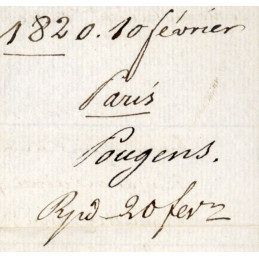 1820. 10 février
Paris
Pougens.
Rpd 20 fevr